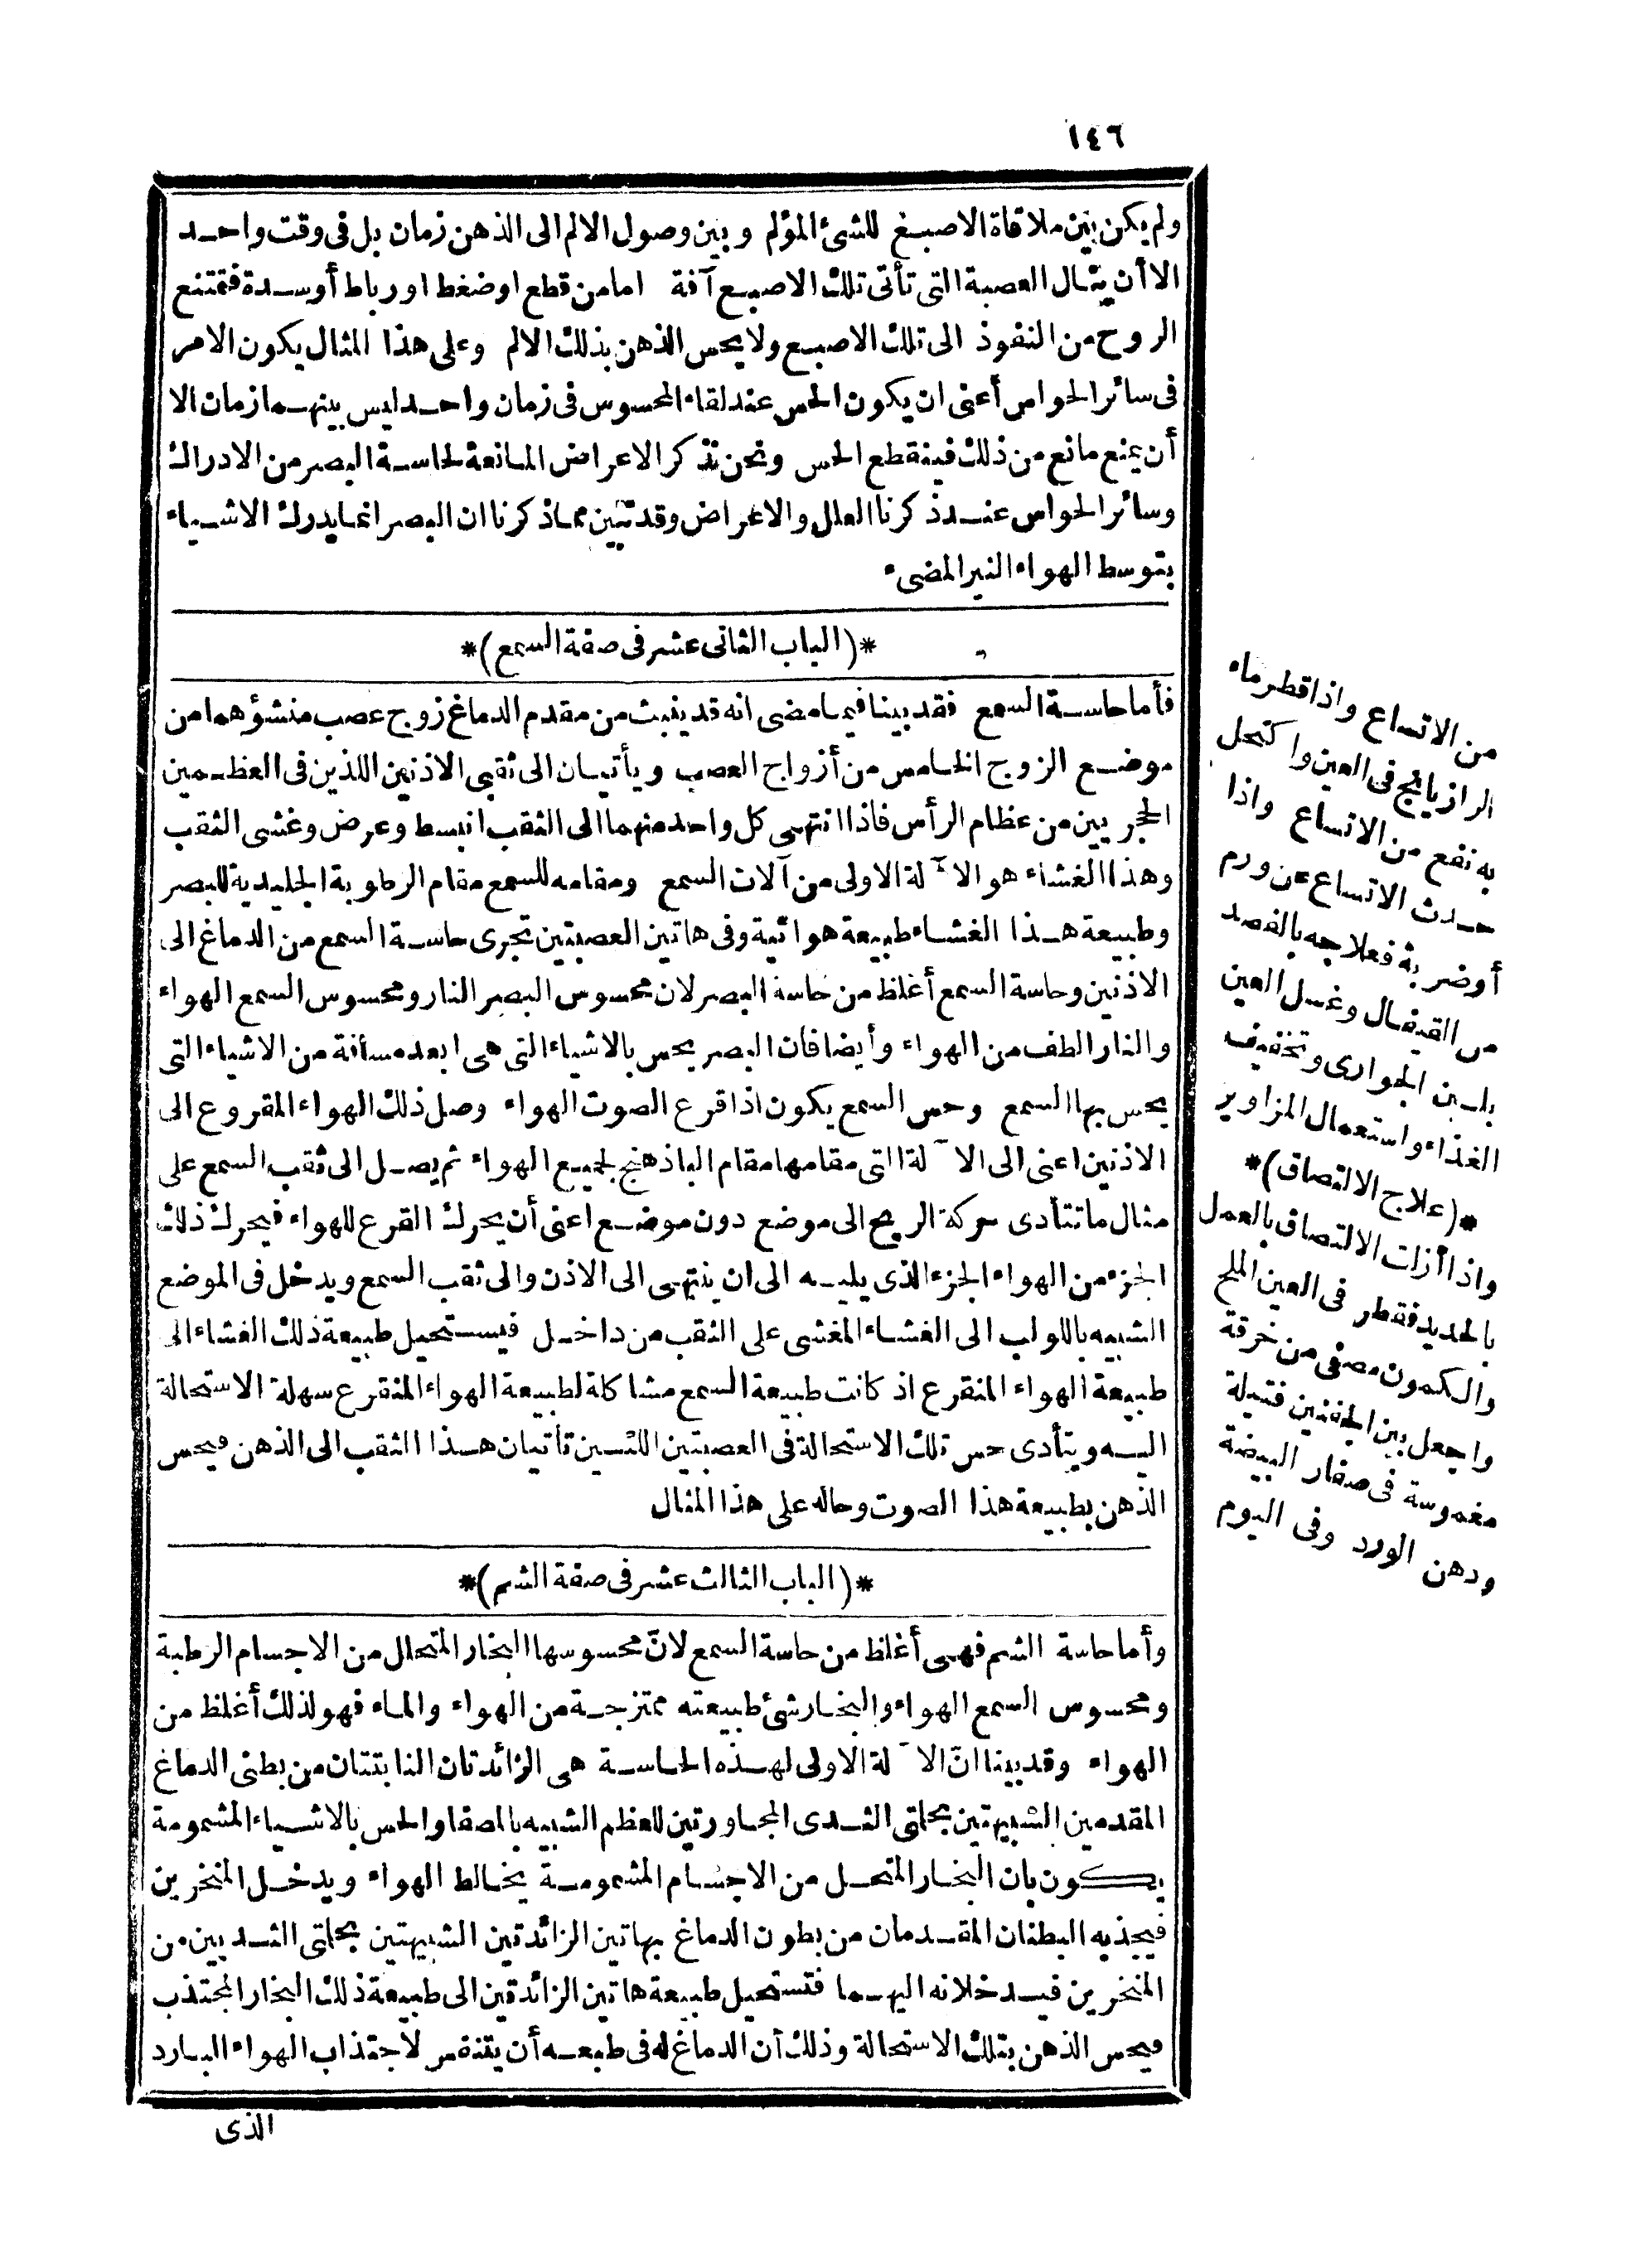 ١٤٦
ولم يكن بين ملاقاة الاصبع للشئ المؤلم وبين وصول الالم الى الذهن زمان بل فى وقت واحد
الا أن ينال العصبة التى تأتى تلك الاصبع آفة امامن قطع اوضغط اورباط أوسدة فتمتنع
الروح من النفوذ الى تلك الاصبع ولا يحس الذهن بذلك الالم وعلى هذا المثال يكون الامر
فى سائر الحواس أعنى ان يكون الحس عند لقاء المحسوس فى زمان واحد ليس بينهما زمان الا
أن يمنع مانع من ذلك فينقطع الحس ونحن نذكر الاعراض المانعة لحاسة البصر من الادراك
وسائر الحواس عند ذكرنا العلل والاعراض وقد تبين مماذكرنا ان البصر انما يدرك الاشياء
بتوسط الهواء النير المضىء
*(الباب الثانى عشر فى صفة السمع)*
فأما حاسة السمع فقد بينا فيما مضى انه قد ينبث من مقدم الدماغ زوج عصب منشؤهما من
موضع الزوج الخامس من أزواج العصب ويأتيان الى ثقبى الاذنين اللذين فى العظمين
الحجريين من عظام الرأس فاذا انتهى كل واحد منهما الى الثقب انبسط وعرض وغشى الثقب
وهذا الغشاء هو الآلة الاولى من آلات السمع ومقامه للسمع مقام الرطوبة الجليدية للبصر
وطبيعة هذا الغشاء طبيعة هوائية وفى هاتين العصبتين تجرى حاسة السمع من الدماغ الى
الاذنين وحاسة السمع أغلظ من حاسة البصر لان محسوس البصر النار ومحسوس السمع الهواء
والنار الطف من الهواء وأيضا فان البصر يحس بالاشياء التى هى ابعد مسافة من الاشياء التى
يحس بها السمع وحس السمع يكون اذا قرع الصوت الهواء وصل ذلك الهواء المقروع الى
الاذنين اعنى الى الآلة التى مقامها مقام الباذهنج لجميع الهواء ثم يصل الى ثقب السمع على
مثال ما تتأدى حركة الريح الى موضع دون موضع اعنى أن يحرك القرع للهواء فيحرك ذلك
الجزء من الهواء الجزء الذى يليه الى ان ينتهى الى الاذن والى ثقب السمع ويدخل فى الموضع
الشبيه باللولب الى الغشاء المغشى على الثقب من داخل فيستحيل طبيعة ذلك الغشاء الى
طبيعة الهواء المنقرع اذ كانت طبيعة السمع مشاكلة لطبيعة الهواء المنقرع سهلة الاستحالة
اليه ويتأدى حس تلك الاستحالة فى العصبتين اللتين تأتيان هذا الثقب الى الذهن فيحس
الذهن بطبيعة هذا الصوت وحاله على هذا المثال
*(الباب الثالث عشر فى صفة الشم)*
وأما حاسة الشم فهى أغلظ من حاسة السمع لانّ محسوسها البخار المتحلل من الاجسام الرطبة
ومحسوس السمع الهواء والبخار شئ طبيعته ممتزجة من الهواء والماء فهو لذلك أغلظ من
الهواء وقد بينا انّ الآلة الاولى لهذه الحاسة هى الزائدتان النابتتان من بطنى الدماغ
المقدمين الشبيهتين بحلتى الثدى المجاورتين للعظم الشبيه بالمصفا والحس بالاشياء المشمومة
يكون بان البخار المتحلل من الاجسام المشمومة يخالط الهواء ويدخل المنخرين
فيجذبه البطنان المقدمان من بطون الدماغ بهاتين الزائدتين الشبيهتين بحلتى الثديين من
المنخرين فيدخلانه اليهما فتستحيل طبيعة هاتين الزائدتين الى طبيعة ذلك البخار المجتذب
فيحس الذهن بتلك الاستحالة وذلك أن الدماغ له فى طبعه أن يتنفس لاجتذاب الهواء البارد
الذى
من الاتساع واذا قطر ماء
الرازيانج فى العين واكتحل
به نفع من الاتساع واذا
حدث الاتساع عن ورم
أوضربة فعلاجه بالفصد
من القيفال وغسل العين
بلبن الجوارى وتخفيف
الغذاء واستعمال المزاوير
*(علاج الالتصاق)*
واذا أزلت الالتصاق بالعمل
بالحديد فقطر فى العين الملح
والكمون مصفى من خرقة
واجعل بين الجفنين فتيلة
مغموسة فى صفار البيضة
ودهن الورد وفى اليوم